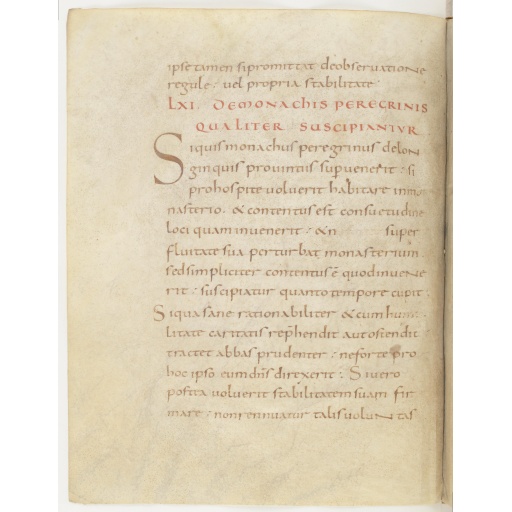 ipse tamen si promittat de observatione
regule · vel propria stabilitate
LXI. DE MONACHIS PEREGRINIS
QUALITER SUSCIPIANTVR
Si quis monachus peregrinus de lon
ginquis provintiis supvenerit · si
pro hospite voluerit habitare in mo
nasterio · & contentus est consuetudine
loci quam invenerit · & n super
fluitate sua perturbat monasterium
sed simpliciter contentus ē quod invene
rit · suscipiatur quanto tempore cupit ·
Siqua sane rationabiliter & cum humi
litate caritatis rep̄hendit aut ostendit
tractet abbas prudenter · ne forte pro
hoc ipso eum dn̄s direxerit · Si vero
postea voluerit stabilitatem suam fir
mare · non rennuatur talis voluntas